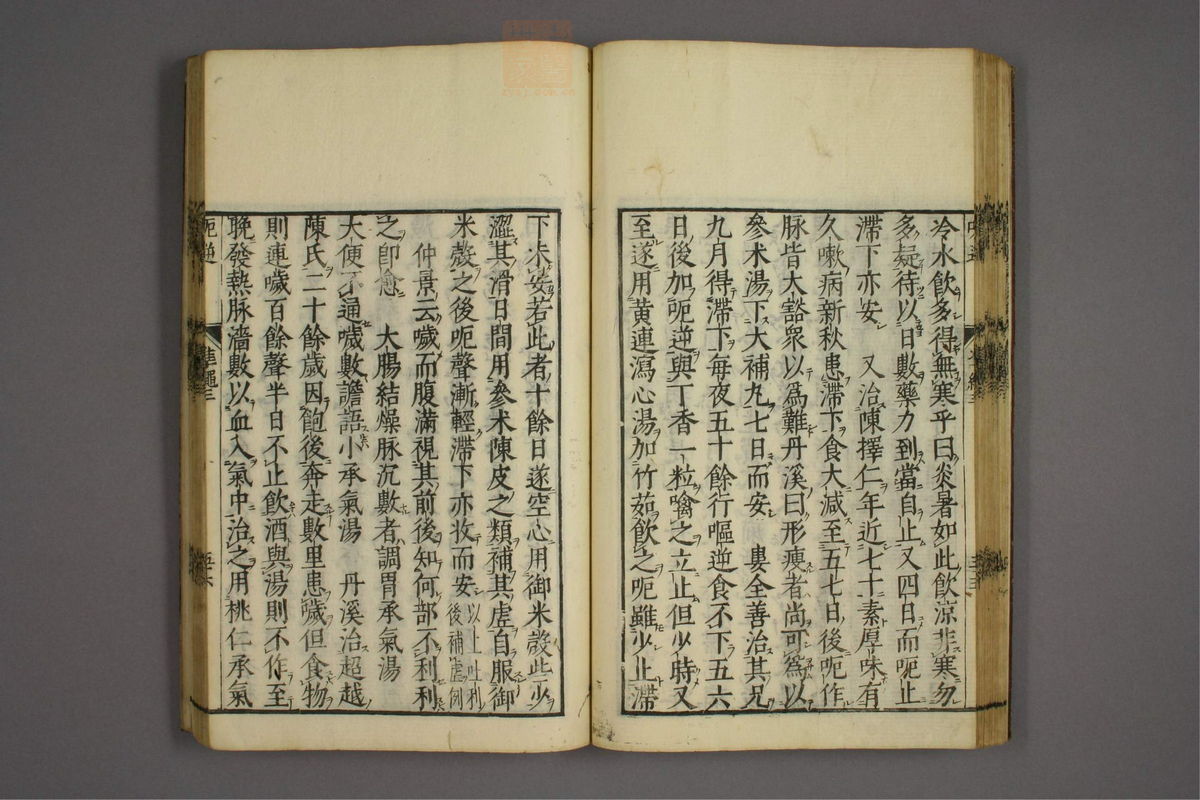 冷水飲多得無寒乎曰炎暑如此飲涼非寒勿
多疑待以日數藥力到當自止又四日而呃止
滯下亦安　又治陳擇仁年近七十素厚味有
久嗽病新秋患滯下食大減至五七日後呃作
脉皆大豁衆以爲難丹溪曰形瘦者尚可爲以
參术湯下大補丸七日而安　婁全善治其兄
九月得滯下每夜五十餘行嘔逆食不下五六
日後加呃逆與丁香一粒噙之立止但少時又
至遂用黄連瀉心湯加竹茹飲之呃雖少止滯
下未安若此者十餘日遂空心用御米殼些少
澀其滑日間用參术陳皮之類補其虛自服御
米殼之後呃聲漸輕滯下亦收而安以上吐利後補虛例
仲景云噦而腹滿視其前後知何部不利利
之卽愈　大腸結燥脉沉數者調胃承氣湯
大便不通噦數譫語小承氣湯　丹溪治超越
陳氏二十餘歲因飽後奔走數里患噦但食物
則連噦百餘聲半日不止飲酒與湯則不作至
晚發熱脉濇數以血入氣中治之用桃仁承氣
呃逆
準繩三